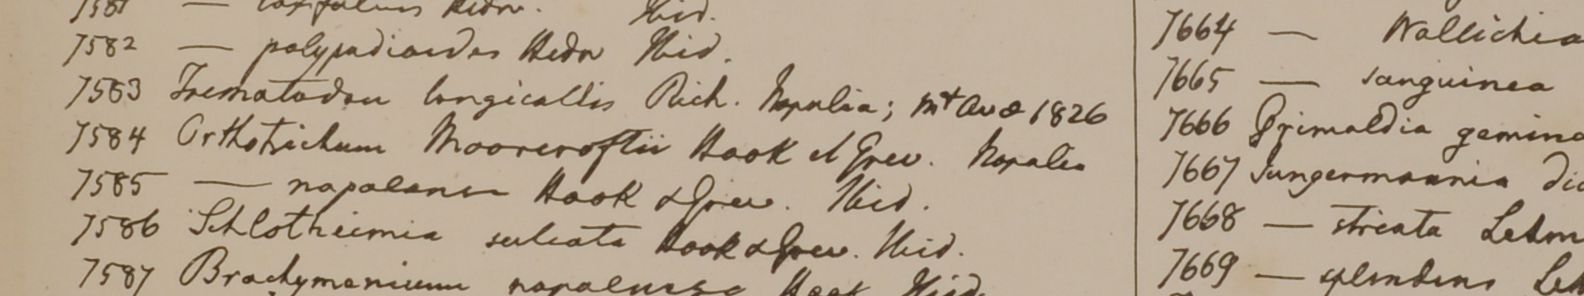 7581 — Hedw. Ibid.
7582 — polypodioides Hedw Ibid.
7583 Trematodon longicollis Rich. Napalia; Mt Ava 1826
7584 Orthotrichum Moorcroftii Hook et Grev. Napalia
7585 — napalense Hook & Grev. Ibid.
7586 Schlotheimia sulcata Hook & Grev. Ibid.
7587 Brachymenium napalense Hook Ibid.
7664 — Wallichia
7665 — sanguinea
7666 Grimaldia gemina
7667 Jungermannia
7668 — striata Lehm
7669 — splendens Leh